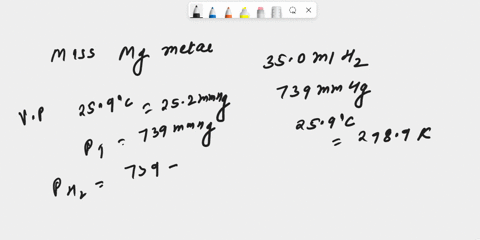 Miss Mg metal
V.P 25.9°C = 25.2 mmHg
P1 = 739 mmHg
PH2 = 739 -
35.0 ml H2
739 mm Hg
25.9°C
= 298.9 K